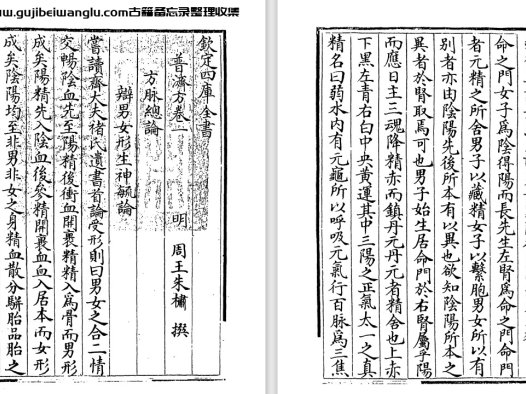 www.gujibeiwanglu.com古籍备忘录整理收集
欽定四庫全書
普濟方卷一 明 周王朱橚 撰
方脉總論
辯男女形生神毓論
嘗讀齋大夫褚氏遺書首論受形則曰男女之合二情
交暢陰血先至陽精後衝血開裹精精入為骨而男形
成矣陽精先入陰血後參精開裹血血入居本而女形
成矣陰陽均至非男非女之身精血散分駢胎品胎之
命之門女子為陰得陽而長先生左腎為命之門命門
者元精之所舍男子以藏精女子以繫胞男女所以有
別者亦由陰陽先後所本有以異也欲知陰陽所本之
異者於腎取焉可也男子始生居命門於右腎屬乎陽
而應日主三魂降精赤而鎮丹元丹元者精舍也上赤
下黑左青右白中央黃運其中三陽之正氣太一之真
精名曰弱水内有元龜所以呼吸元氣行百脉為三焦